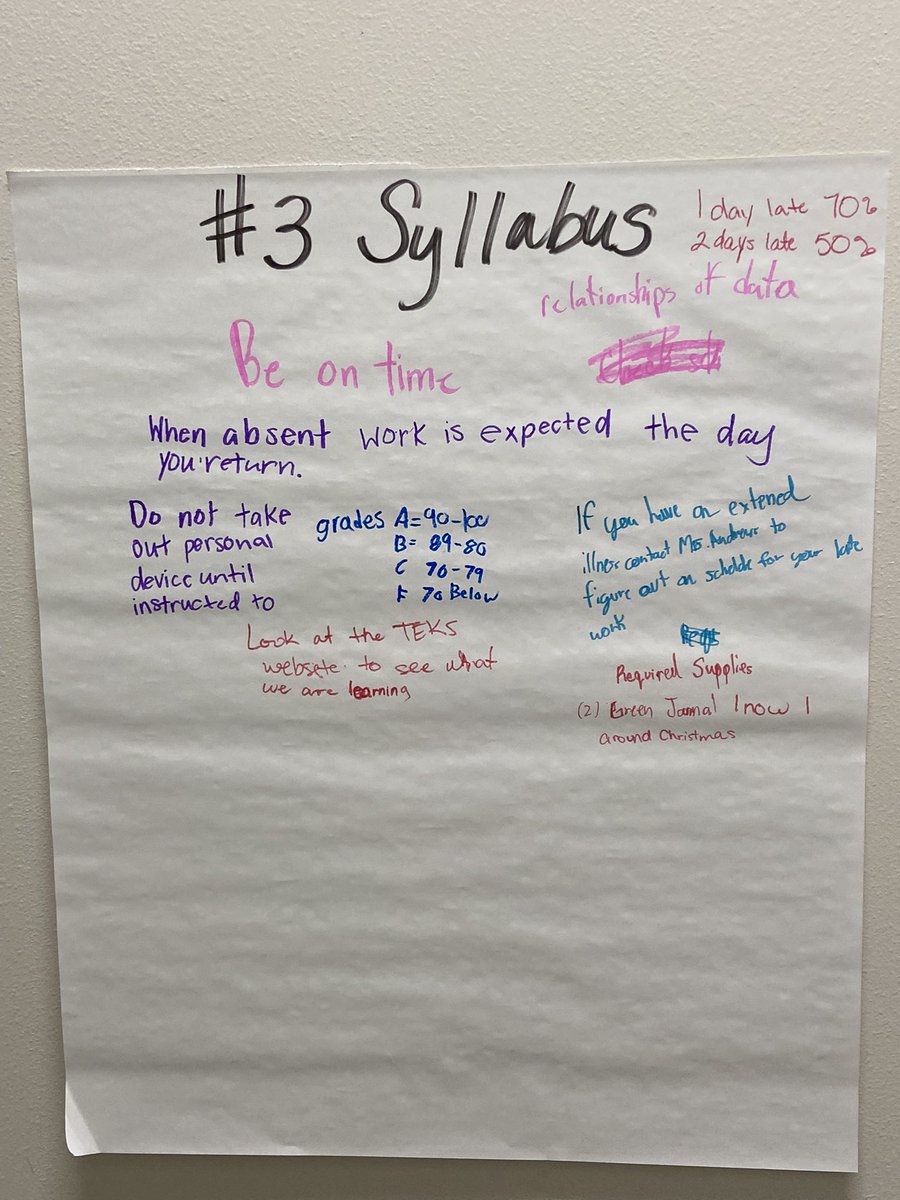 #3 Syllabus
1 day late 70%
2 days late 50%
relationships of data
Be on time
When absent work is expected the day
you return.
Do not take
out personal
device until
instructed to
grades A=90-100
B= 89-80
C 70-79
F 70 Below
If you have an extened
illness contact Ms. Andrews to
figure out an schelde for your late
work
Look at the TEKS
website to see what
we are learning
Required Supplies
(2) Green Jarnal 1 now 1
around Christmas